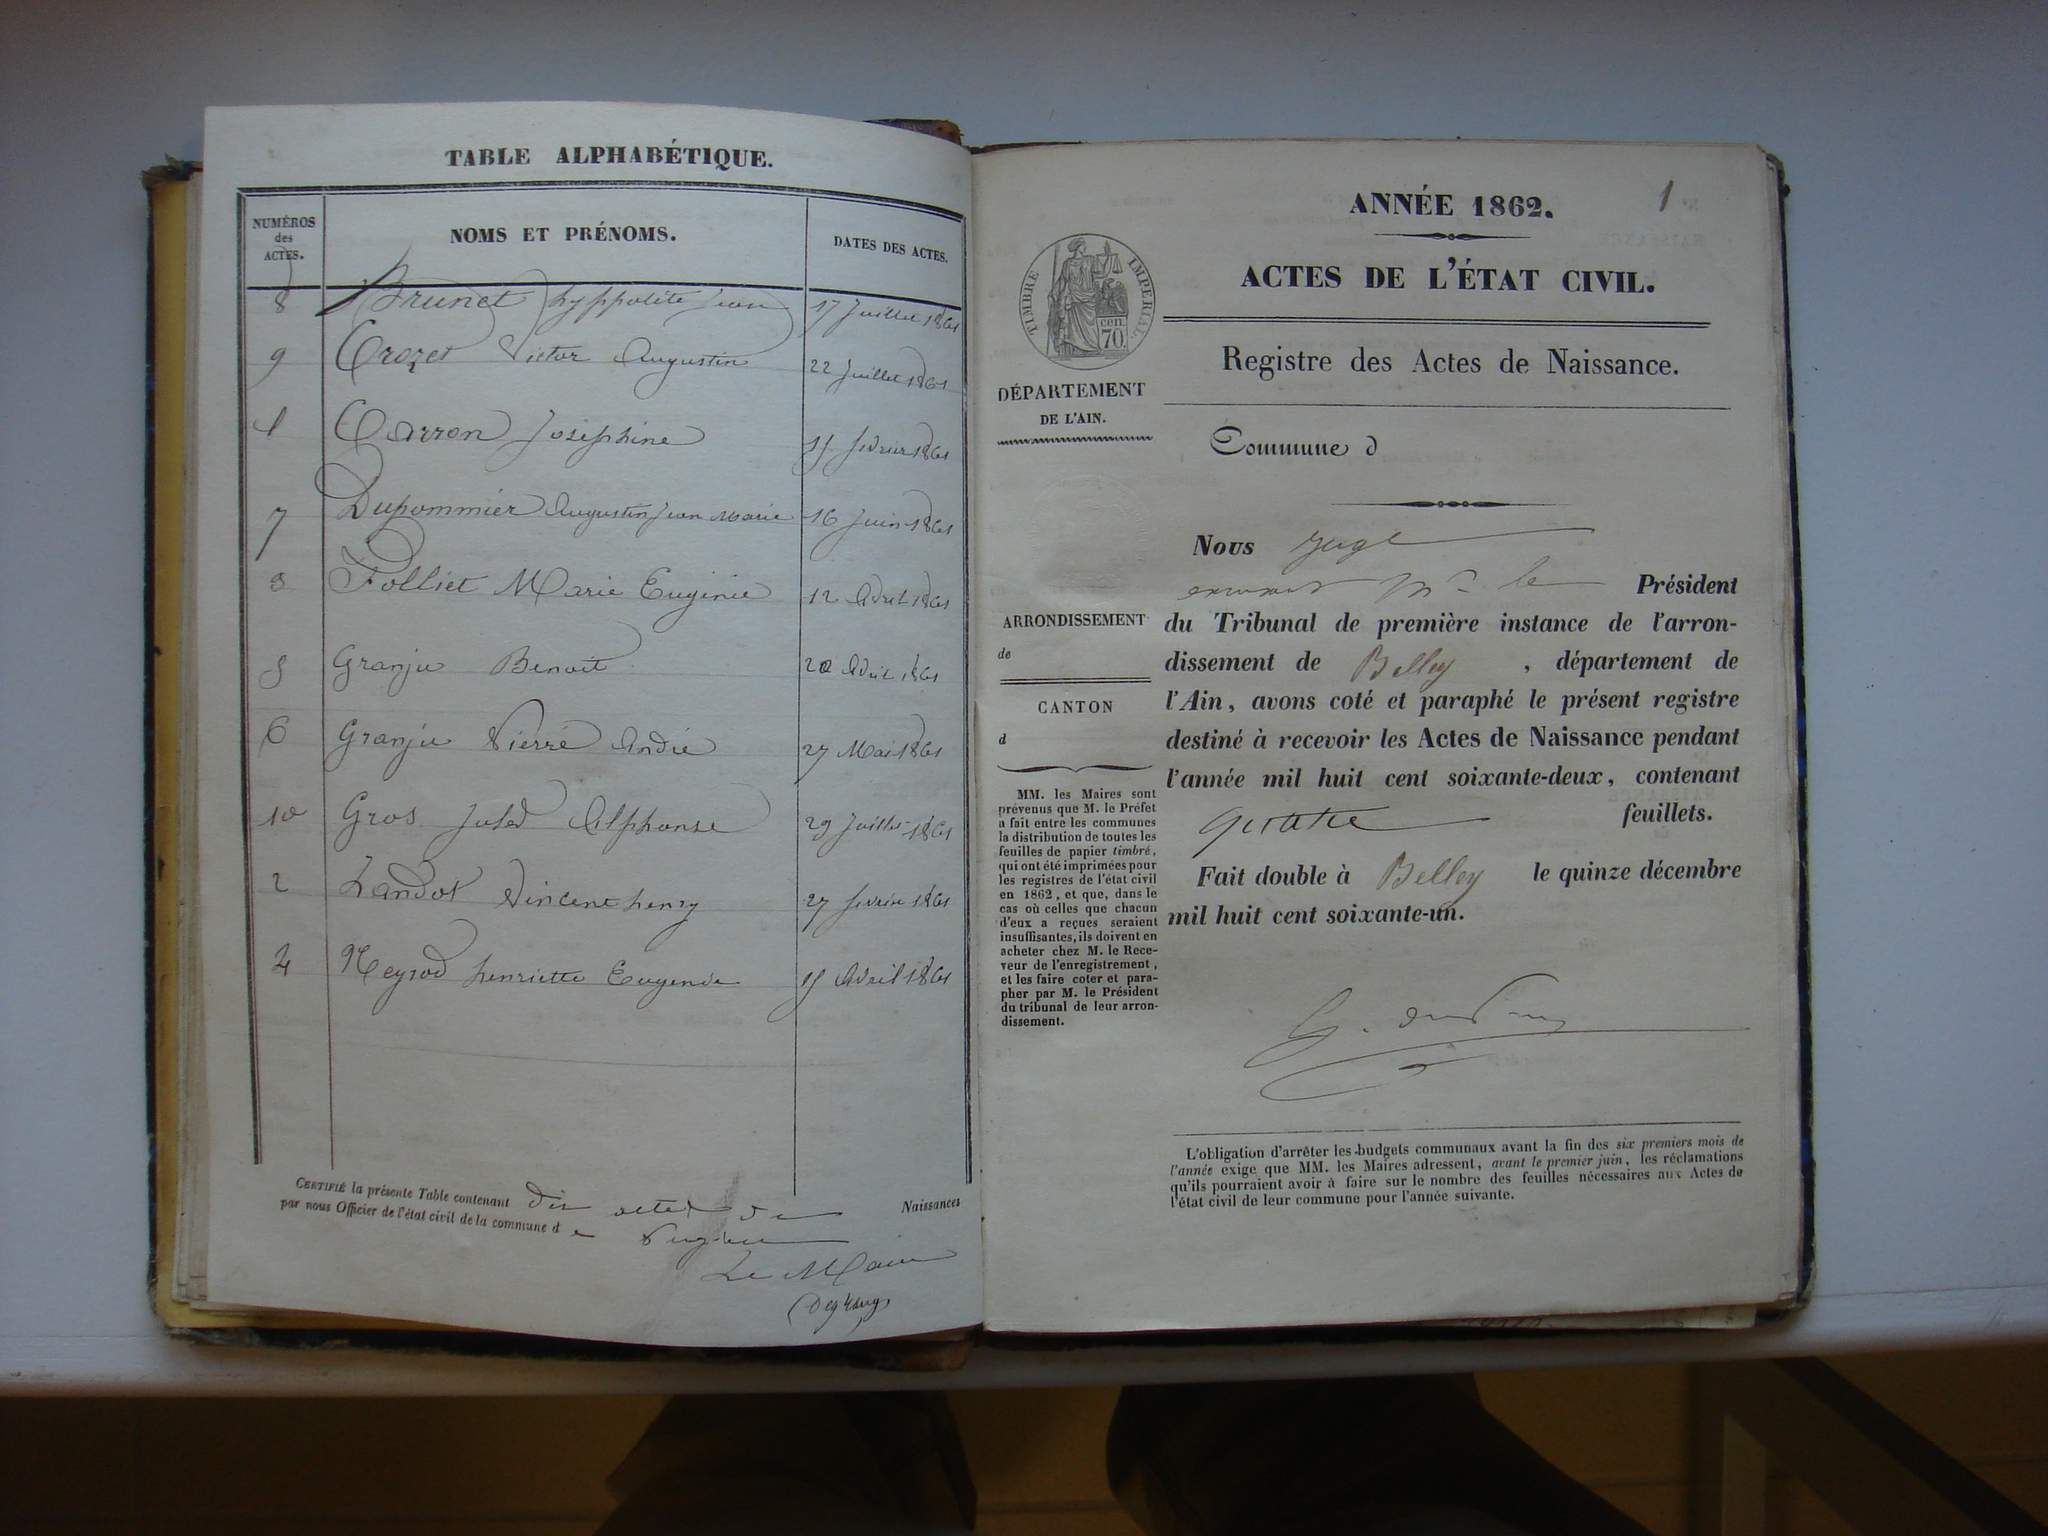 TABLE ALPHABÉTIQUE.
NUMÉROS
des
ACTES.
NOMS ET PRÉNOMS.
DATES DES ACTES.
8 Brunet hyppolite jean 17 Juillet 1861
9 Crozet Victor Augustin 22 Juillet 1861
1 Carron Joséphine 11 fevrier 1861
7 Dupommier Augustin Jean Marie 16 Juin 1861
3 Folliet Marie Euginie 12 Avril 1861
5 Granju Benoit 20 Avril 1861
6 Granju Pierre André 27 Mai 1861
10 Gros Jules Alphonse 29 Juillet 1861
2 Landot Vincent henry 27 fevrier 1861
4 Neyrod henriette Eugenie 15 Avril 1861
CERTIFIÉ la présente Table contenant dix actes de Naissances
par nous Officier de l'état civil de la commune de Pugieu
Le Maire
1
ANNÉE 1862.
ACTES DE L'ÉTAT CIVIL.
Registre des Actes de Naissance.
TIMBRE IMPÉRIAL.
cen.
70.
DÉPARTEMENT
DE L'AIN.
Commune d
Nous juge
Mr le Président
du Tribunal de première instance de l'arron-
dissement de Belley , département de
l'Ain, avons coté et paraphé le présent registre
destiné à recevoir les Actes de Naissance pendant
l'année mil huit cent soixante-deux, contenant
quatre feuillets.
Fait double à Belley le quinze décembre
mil huit cent soixante-un.
ARRONDISSEMENT
de
CANTON
d
MM. les Maires sont
prévenus que M. le Préfet
a fait entre les communes
la distribution de toutes les
feuilles de papier timbré,
qui ont été imprimées pour
les registres de l'état civil
en 1862, et que, dans le
cas où celles que chacun
d'eux a reçues seraient
insuffisantes, ils doivent en
acheter chez M. le Rece-
veur de l'enregistrement,
et les faire coter et para-
pher par M. le Président
du tribunal de leur arron-
dissement.
L'obligation d'arrêter les budgets communaux avant la fin des six premiers mois de
l'année exige que MM. les Maires adressent, avant le premier juin, les réclamations
qu'ils pourraient avoir à faire sur le nombre des feuilles nécessaires aux Actes de
l'état civil de leur commune pour l'année suivante.